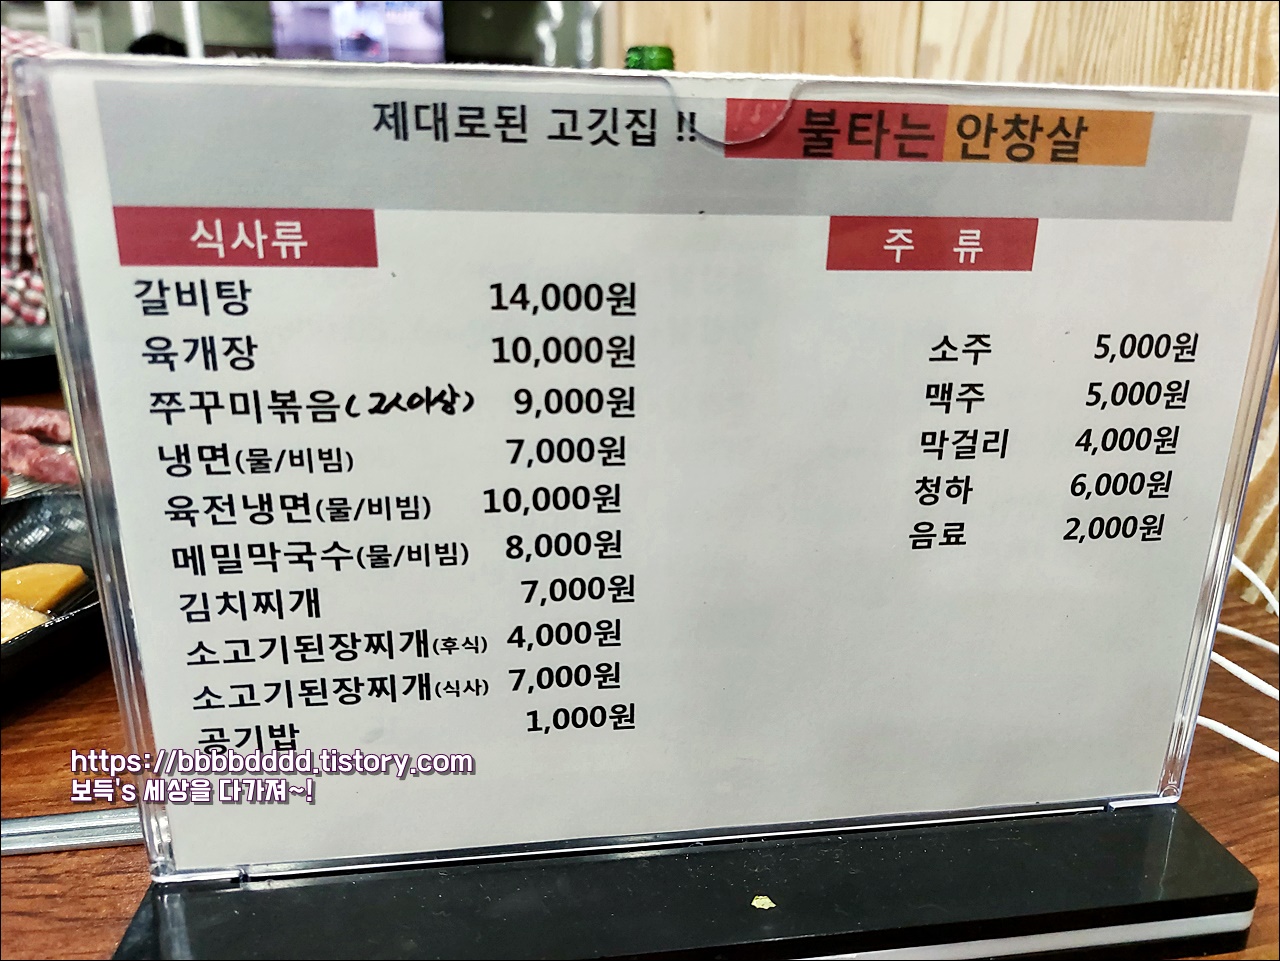 제대로된 고깃집 !! 불타는 안창살
식사류
갈비탕 14,000원
육개장 10,000원
쭈꾸미볶음(2人이상) 9,000원
냉면(물/비빔) 7,000원
육전냉면(물/비빔) 10,000원
메밀막국수(물/비빔) 8,000원
김치찌개 7,000원
소고기된장찌개(후식) 4,000원
소고기된장찌개(식사) 7,000원
공기밥 1,000원
주 류
소주 5,000원
맥주 5,000원
막걸리 4,000원
청하 6,000원
음료 2,000원
https://bbbbdddd.tistory.com
보득's 세상을 다가져~!